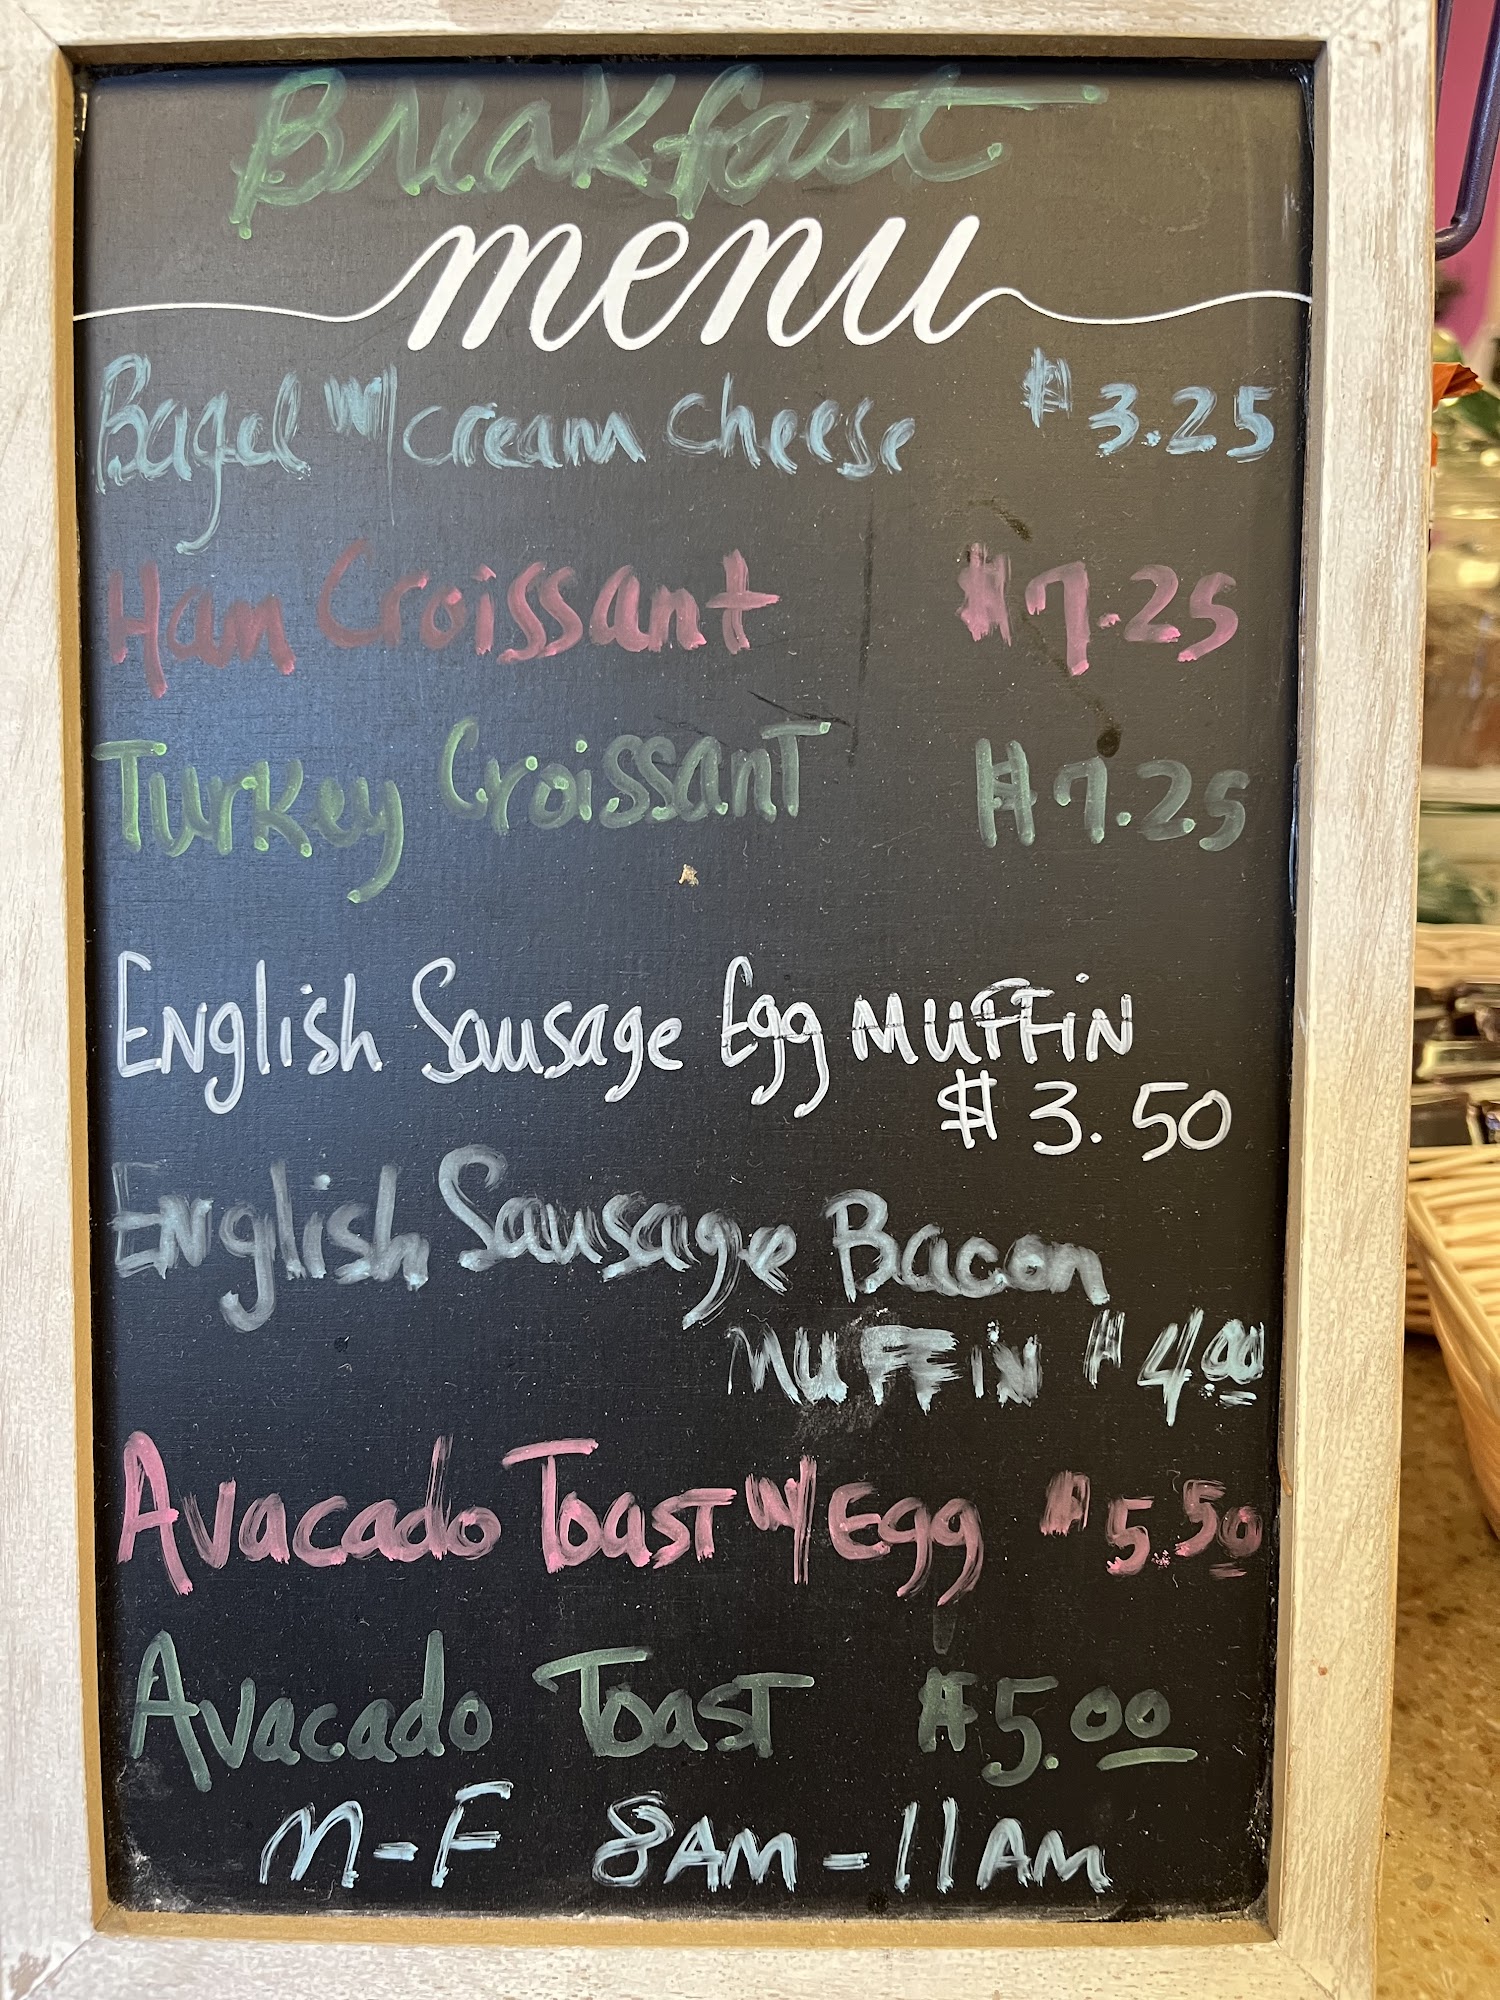 Breakfast
menu
Bagel w/ cream cheese $3.25
Ham Croissant $7.25
Turkey Croissant $7.25
English Sausage Egg MUFFiN
$3.50
English Sausage Bacon
MUFFiN $4.00
Avacado Toast w/ Egg $5.50
Avacado Toast $5.00
M-F 8AM-11AM